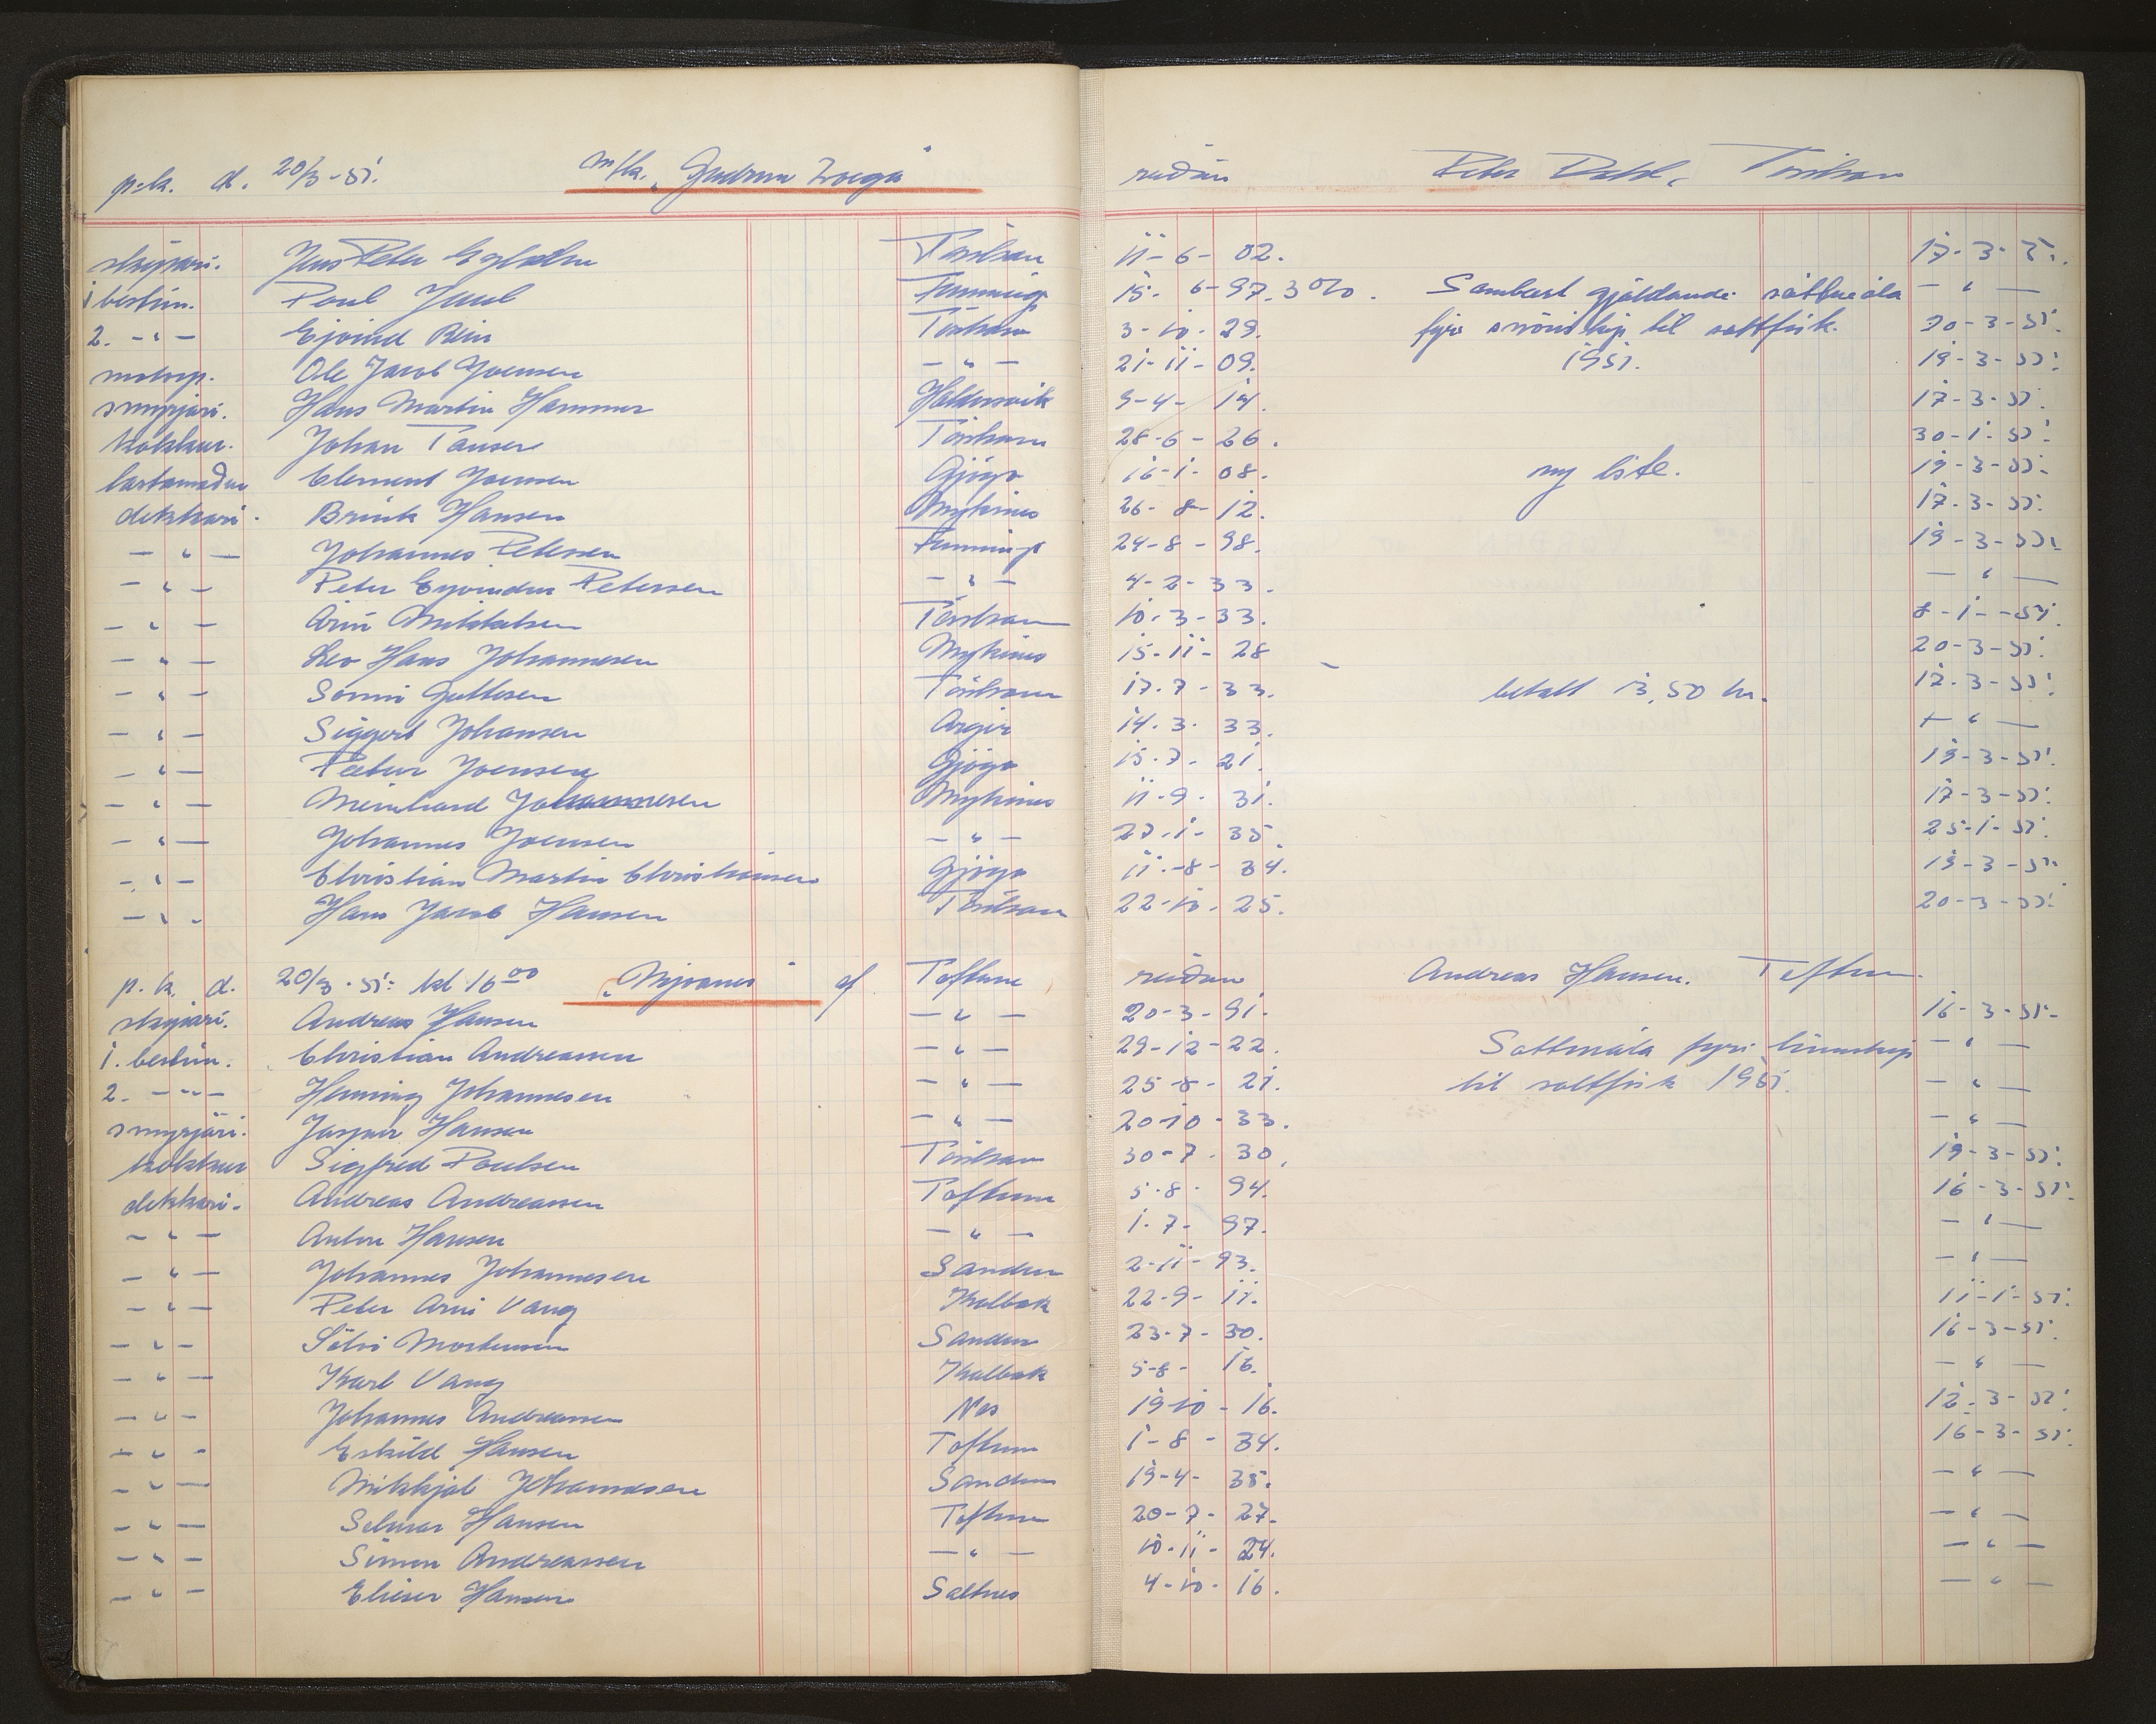 p.k. d. 20/3-51. m/k. „Gudrun Zoega" reiðarí Peter Dahl, Tórshavn
skipari. Jens Peter Tórshavn 11-6-02. 17-3-51.
1 bestim. Poul Juul Funning 15-6-97. 3%. Sambært gjøldandi sáttmála — " —
2. — " — Ejvind Rein Tórshavn 3-10-29. fyri snøriskip til saltfisk. 20-3-51.
motorp. Ole Jacob Joensen — " — 21-11-09. 1951. 19-3-51.
smyrjari. Hans Martin Hammer Haldersvik 9-4-14. 17-3-51.
kokkur. Johan Tausen Tórshavn 28-6-26. 30-1-51.
lastamaður Clement Joensen Gjógv 16-1-08. ny liste. 19-3-51.
dekkari. Brink Hansen Mykines 26-8-12. 17-3-51.
— " — Johannes Petersen Funning 24-8-98. 19-3-51.
— " — Peter Eyvindur Petersen — " — 4-2-33. — " —
— " — Arni Mikkelsen Tórshavn 10-3-33. 8-1-51.
— " — Leo Hans Johannesen Mykines 15-11-28 20-3-51.
— " — Sonni Guttesen Tórshavn 17-7-33. betalt 13,50 kr. 12-3-51.
— " — Siggert Johansen Argir 14-3-33. — " —
— " — Petur Joensen Gjógv 15-7-21. 19-3-51.
— " — Meinhard Johannesen Mykines 11-9-31. 17-3-51.
— " — Johannes Joensen — " — 27-1-35. 25-1-51.
— " — Christian Martin Christiansen Gjógv 11-8-34. 19-3-51.
— " — Hans Jacob Hansen Tórshavn 22-10-25. 20-3-51.
p.k. d. 20/3-51. kl 16⁰⁰ „Mjóanes" af Toftum reiðarí Andreas Hansen. Toftum.
skipari. Andreas Hansen — " — 20-3-91. 16-3-51.
1. bestim. Christian Andreassen — " — 29-12-22. Sáttmála fyri línuskip — " —
2. — " — Henning Johannesen — " — 25-8-21. til saltfisk 1951. — " —
smyrjari. Jaspur Hansen — " — 20-10-33. — " —
kokkur Sigfred Poulsen Tórshavn 30-7-30. 19-3-51.
dekkari. Andreas Andreassen Toftum 5-8-94. 16-3-51.
— " — Anton Hansen — " — 1-7-97. — " —
— " — Johannes Johannesen Sandur 2-11-93. — " —
— " — Peter Arni Vang Kalbak 22-9-11. 11-1-51.
— " — Sólvi Mortensen Sandur 23-7-30. 16-3-51.
— " — Karl Vang Kalbak 5-8-16. — " —
— " — Johannes Andreassen Nes 19-10-16. 12-3-51.
— " — Eskild Hansen Toftum 1-8-34. 16-3-51.
— " — Mikkjal Johannesen Sandur 19-4-35. — " —
— " — Selmar Hansen Toftum 20-7-27. — " —
— " — Simon Andreassen — " — 10-11-24. — " —
— " — Elieser Hansen Saltnes 4-10-16. — " —